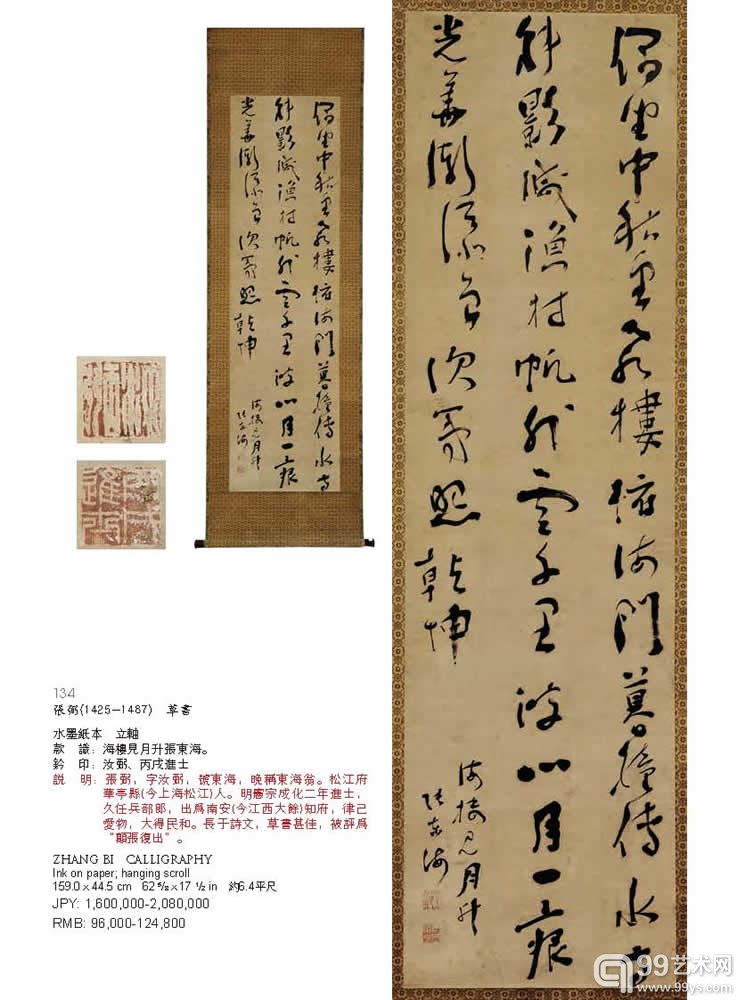 偶坐中秋樓海門暮鐘傳水寺
斜影滅漁村帆外雲千里波心月一痕
光華漸次第照乾坤
海樓見月升
張東海
汝弼
丙戌進士
134
張弼(1425—1487) 草書
水墨紙本 立軸
款 識：海樓見月升張東海。
鈐 印：汝弼、丙戌進士
説 明：張弼，字汝弼，號東海，晚稱東海翁。松江府
華亭縣(今上海松江)人。明憲宗成化二年進士，
久任兵部郎，出爲南安(今江西大餘)知府，律己
愛物，大得民和。長于詩文，草書甚佳，被評爲
“顛張復出”。
ZHANG BI CALLIGRAPHY
Ink on paper; hanging scroll
159.0×44.5 cm 62 5/8×17 1/2 in 約6.4平尺
JPY: 1,600,000-2,080,000
RMB: 96,000-124,800
99艺术网
www.99ys.com